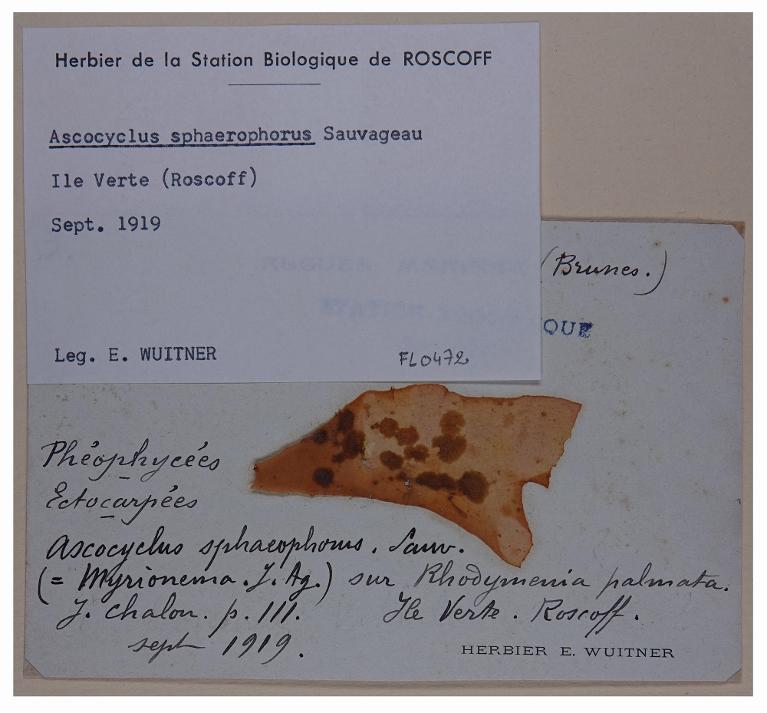 Herbier de la Station Biologique de ROSCOFF
Ascocyclus sphaerophorus Sauvageau
Ile Verte (Roscoff)
Sept. 1919
Leg. E. WUITNER
FL0472
(Brunes.)
QUE
Phéophycées
Ectocarpées
Ascocyclus sphaerophorus. Sauv.
(= Myrionema. J. Ag.) sur Rhodymenia palmata.
J. Chalon. p. 111. Ile Verte. Roscoff.
sept 1919.
HERBIER E. WUITNER